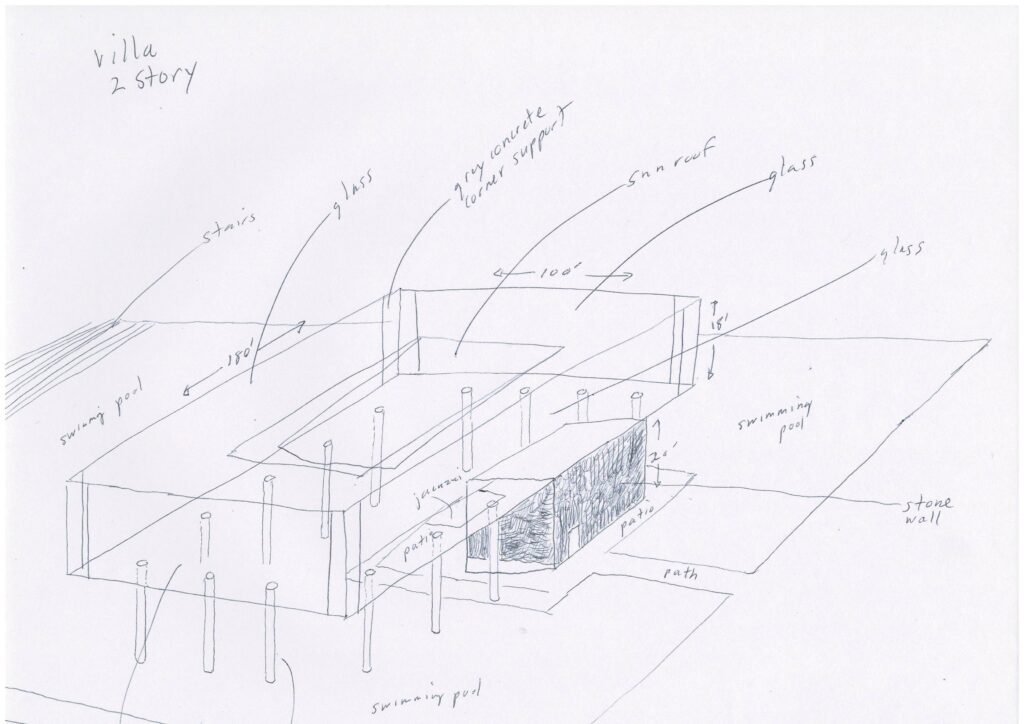 villa
2 story
gray concrete
corner support
sunroof
glass
glass
stairs
glass
100'
18'
180'
swimming pool
swimming
pool
20'
jacuzzi
stone
wall
patio
patio
path
swimming pool